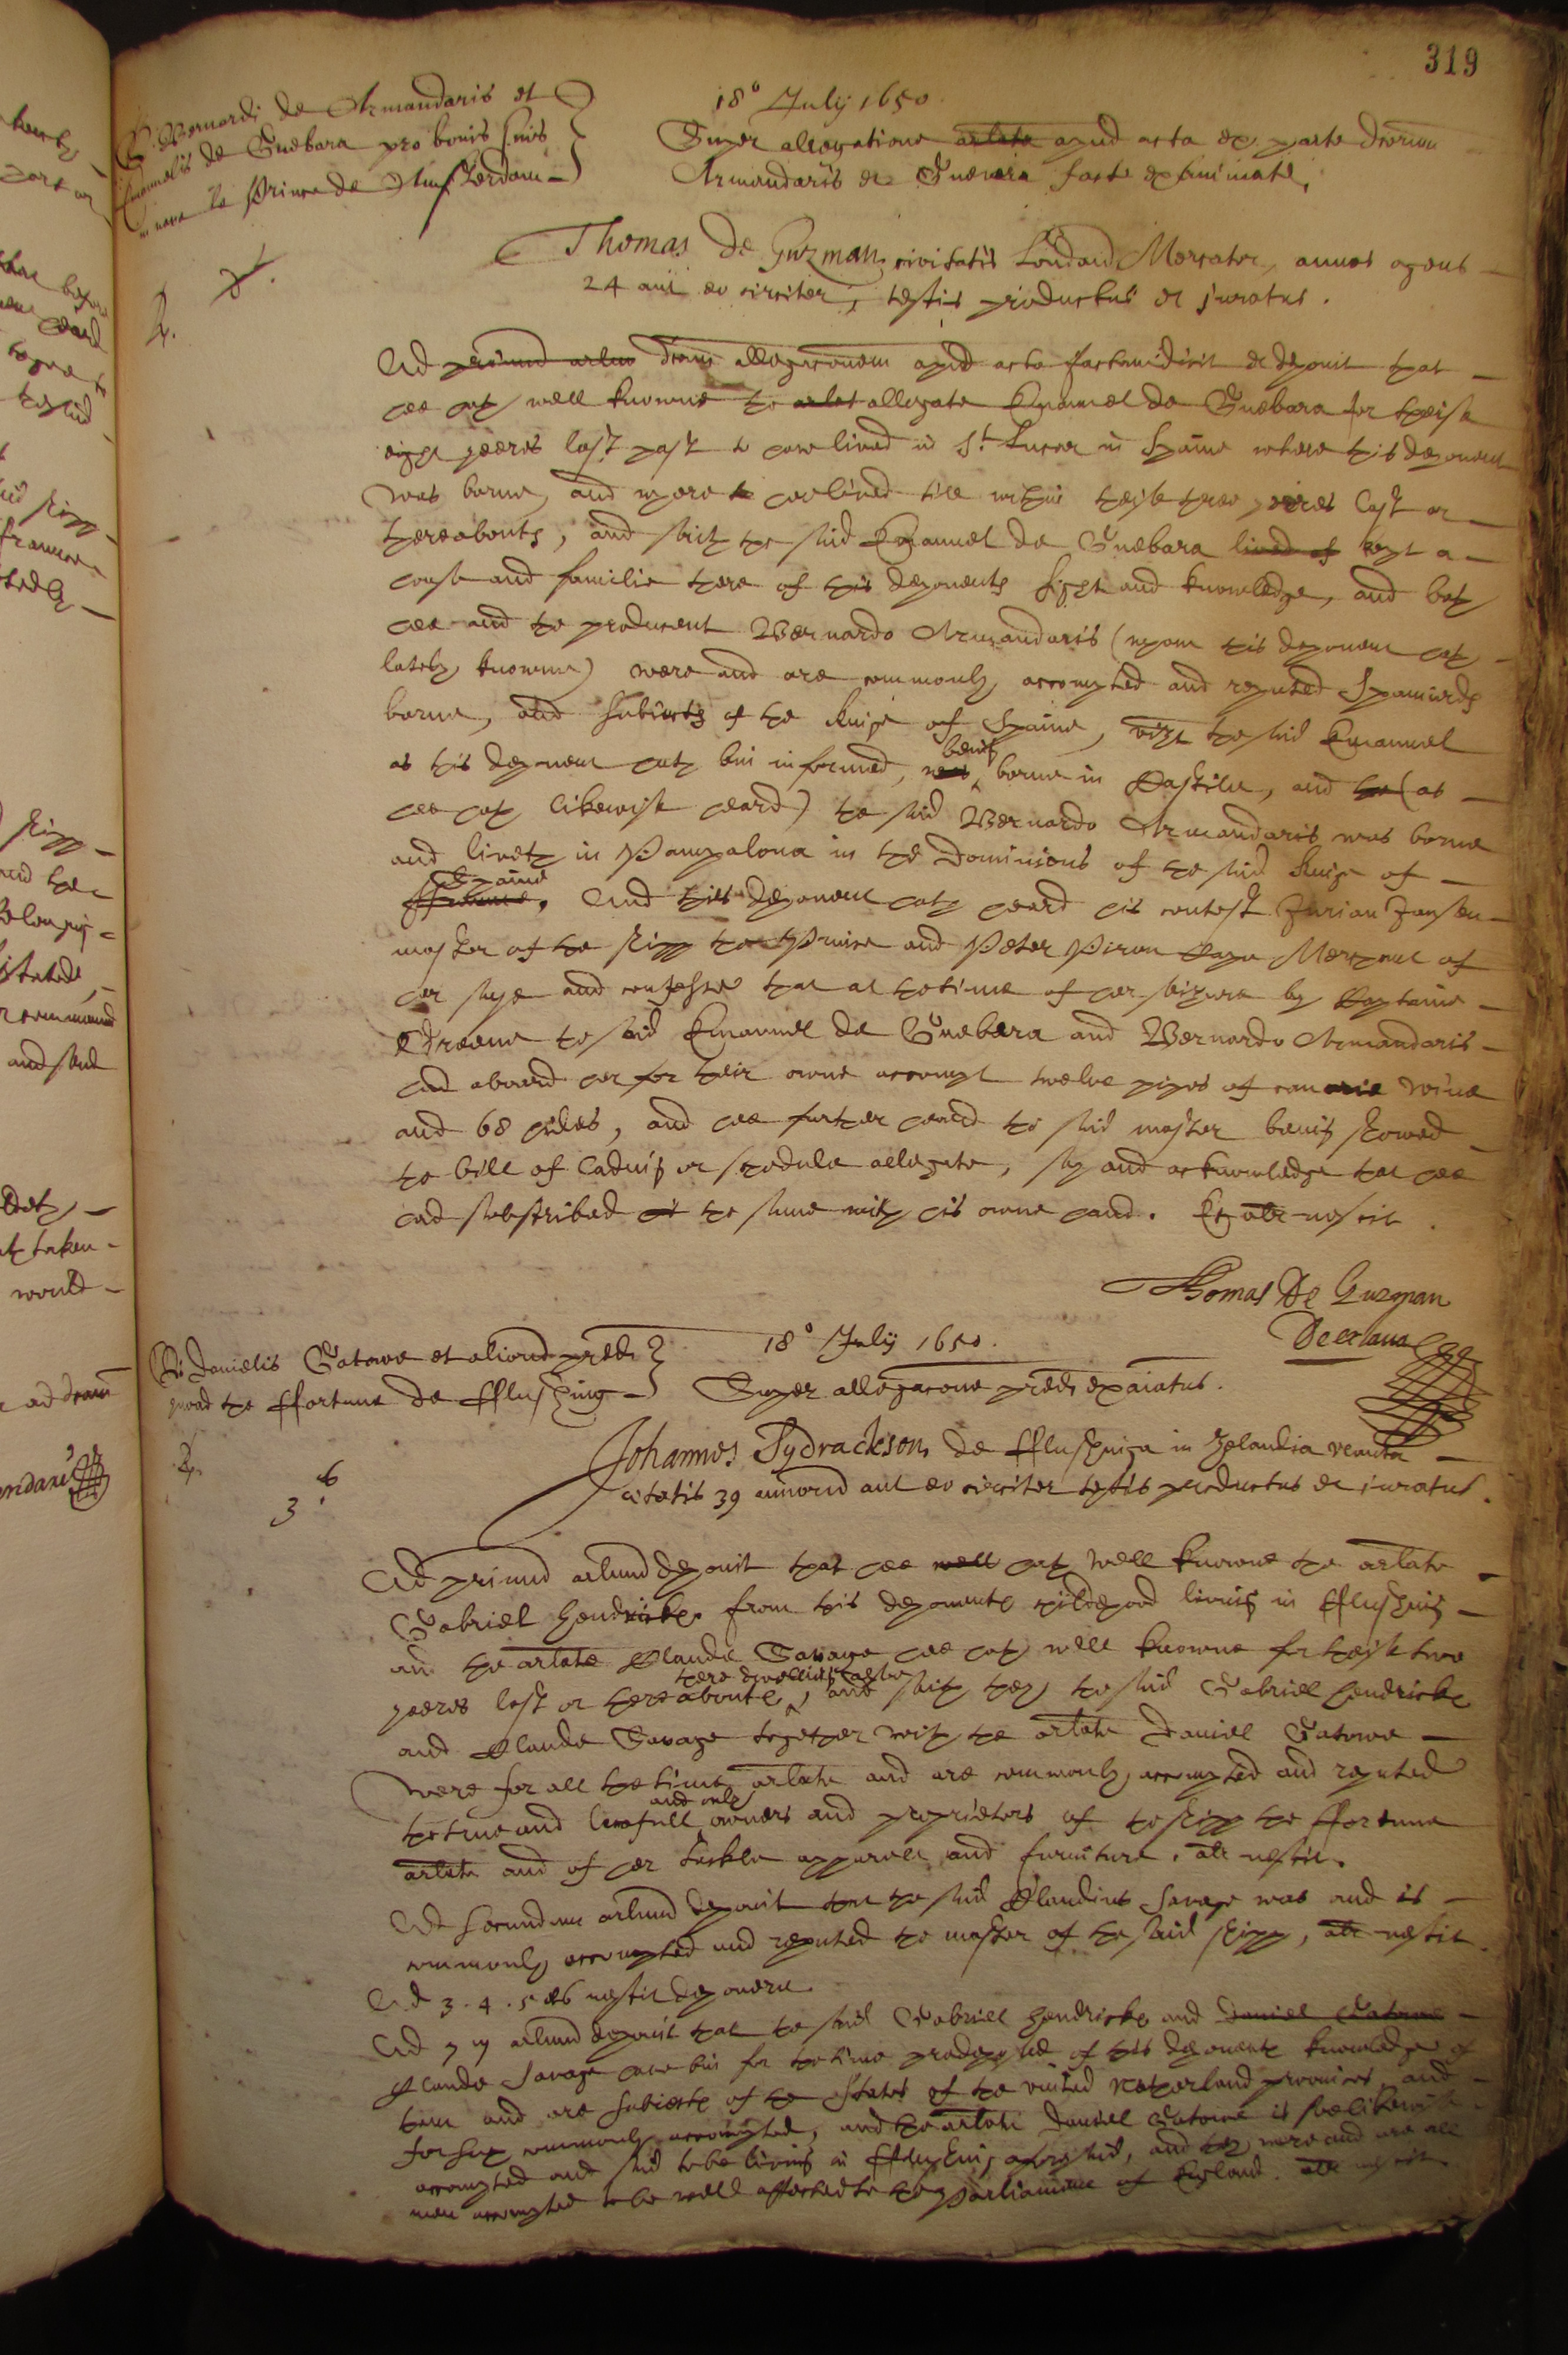 319
Bernardi de Armandaris et
Emanuelis de Guebara pro bonis suis
in nave le Prince de Amsterdam
18º July 1650.
Super allegatione arlata apud acta ex parte dictorum
Armandaris et Guevara facta examinatus,
Thomas De Guzman civitatis London Mercator, annos agens
24 aut eo circiter, testis productus et juratus.
2.
Ad primum arlum dictam allegaconem apud acta factam dicit et deponit that
hee hath well knowne the arlet allegate Emanuel de Guebara for theise
eight yeeres last past to have lived in St Lucar in Spaine where this deponent
was borne, and where he hee lived till within theise three yeeres last or
thereabouts, and saith the said Emanuel de Guebara lived of kept a
house and familie there of this deponents sight and knowledge, and both
hee and the producent Bernardo Armandaris (whom this deponent hath
lately knowne) were and are commonly accompted and reputed Spaniards
borne, and subiects of the kinge of Spaine, vizt the said Emanuel
as this deponent hath bin informed, was being borne in Castile, and the (as
hee hath likewise heard) the said Bernardo Armandaris was borne
and liveth in Pampalona in the dominions of the said kinge of
ffrance Spaine. And this deponent hath heard his contest Jurian Jansen
master of the shipp the Prince and Peter Piron Capa Merchant of
her saye and confesse that at the time of her seizure by Captaine
Greene the said Emanuel de Guebara and Bernardo Armandaris
had aboard her for their owne accompt twelve pipes of canarie wine
and 68 hides, and hee further heard the said master being showed
the bill of lading or schedule allegate, say and acknowledge that hee
had subscribed it the same with his owne hand. Et aliter nescit.
Thomas De Guzman
De exlaua
Danielis Gatowe et aliorum pred.
quoad the ffortune de Fflushing
18º July 1650.
Super allegacone pred. exaiatus.
2.
3.us
Johannes Sydrackson de Fflushinga in Zelandia nauta
ætatis 39 annorum aut eo circiter testis productus et iuratus.
Ad primum arlum deponit that hee well hath well knowne the arlate
Gabriel Hendricks from this deponents childehood living in Fflushing
and the arlate Claude Savage hee hath well knowne for theise two
yeeres last or thereabouts there dwelling alsoe, and saith they the said Gabriel Hendricks
and Claude Savage together with the arlate Daniel Gatowe
were for all the time arlate and are commonly accompted and reputed
the true and lawfull and only owners and proprietors of the shipp the ffortune
arlate and of her tackle apparell and furniture. aliter nescit.
Ad secundum arlum deponit that the said Claudius Savage was and is
commonly accompted and reputed the master of the said shipp, aliter nescit.
Ad 3. 4. 5 et 6 nescit deponere.
Ad 7 m arlum deponit that the said Gabriell Hendricks and Daniel Gatowe
Claude Savage have bin for the time predeposed of this deponents knowledge of
them and are subiects of the States of the united Netherland provinces, and
for such commonly accompted, and the arlate Daniel Gatowe is soe likewise
accompted and said to be living in Fflushing aforesaid, and they were and are all
men accompted to be well affected to the Parliament of England. aliter nescit